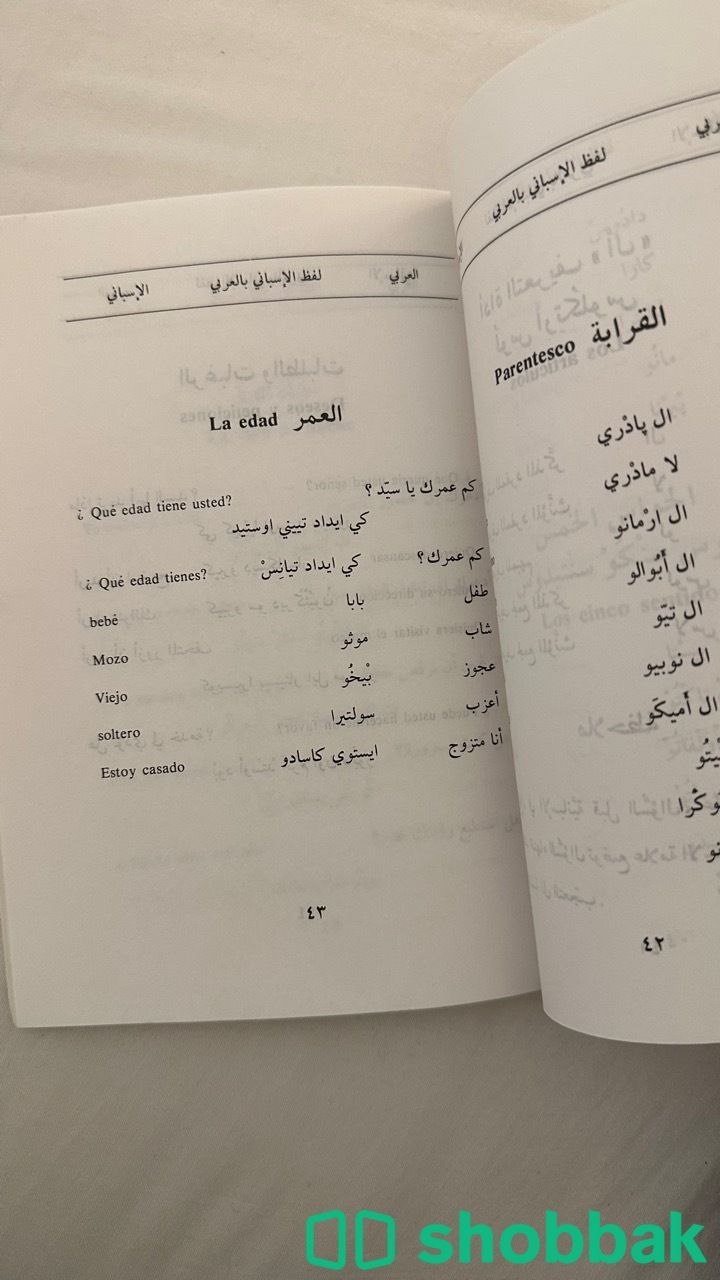 لفظ الإسباني بالعربي
القرابة Parentesco
ال پادْري
لا مادْري
ال ارْمانو
ال أَبُوالو
ال تيّو
ال نوبيو
ال أَميكَو
٤٢
العربي لفظ الإسباني بالعربي الإسباني
العمر La edad
كم عمرك يا سيّد ؟ ¿ Qué edad tiene usted?
كي ايداد تييني اوستيد
كم عمرك ؟ كي ايداد تيانِسْ ¿ Qué edad tienes?
طفل بابا bebé
شاب موثو Mozo
عجوز بْيخُو Viejo
أعزب سولتيرا soltero
أنا متزوج ايستوي كاسادو Estoy casado
٤٣
shobbak